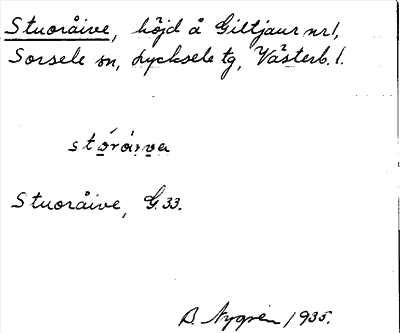 Stuoråive, höjd å Giltjaur nr 1,
Sorsele sn, Lycksele tg, Västerb. l.
stọ́rái̯vɐ
Stuoråive, G.33.
B. Nygren 1935.